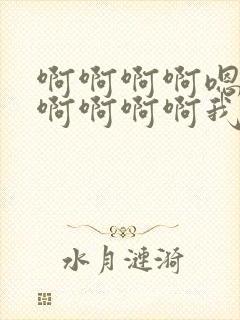 啊啊啊啊嗯
啊啊啊啊我
水月涟漪